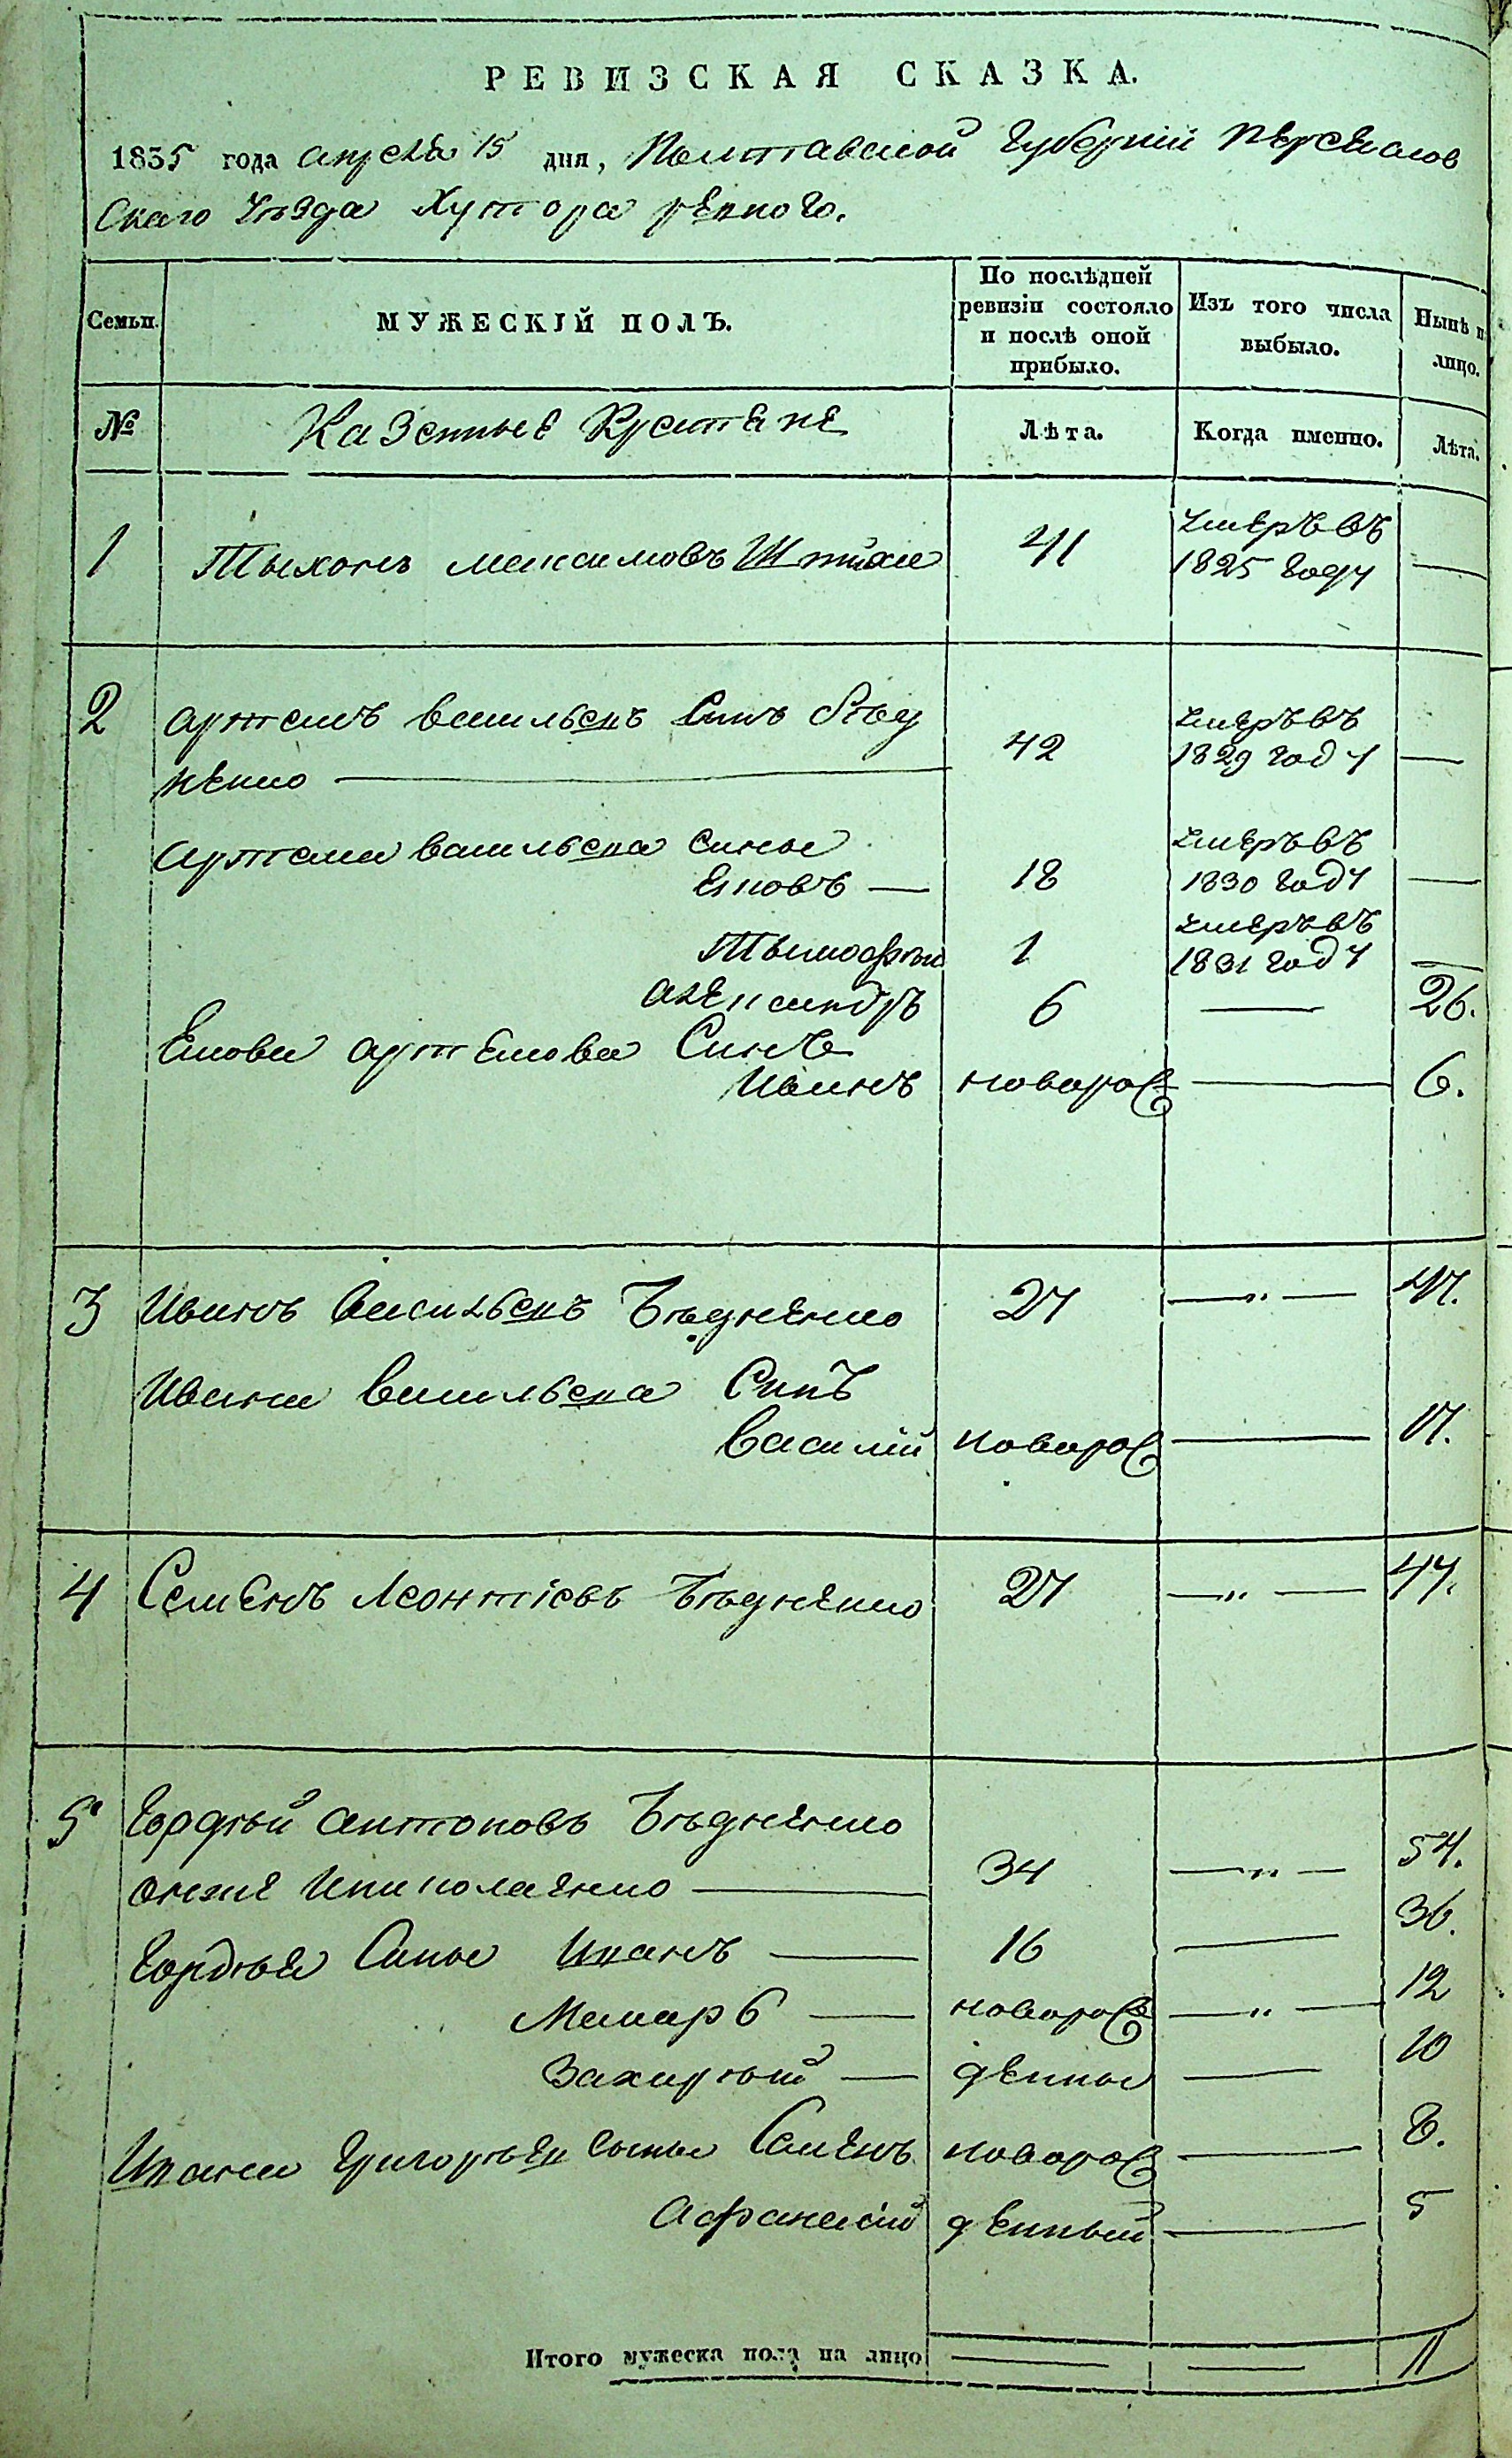 РЕВИЗСКАЯ СКАЗКА.
1835 года апреля 15 дня, Полтавской губернии
скаго уезда Хутора
Семьи. МУЖЕСКІЙ ПОЛЪ. По послѣдней ревизіи состояло и послѣ оной прибыло. Изъ того числа выбыло. Нынѣ н лицо.
№ Казенные Крестяне Лѣта. Когда именно. Лѣта.
1 Тыхонъ максимовъ 41 умеръ въ 1825 году —
2 артемъ васильевъ Синъ Бѣд
ненко — 42 умеръ въ 1829 году —
артема васильева сины
Яковъ — 18 умеръ въ 1830 году —
Тымофѣй 1 умеръ въ 1831 году —
александръ 6 — 26.
Якова артемова Синъ
Иванъ новорож — 6.
3 Иванъ васильевъ Бѣдненко 27 —„— 47.
Ивана васильева Синъ
василій новорож — 17.
4 Семенъ Леонтіевъ Бѣдненко 27 —„— 47.
5 Гордѣй антоновъ Бѣдненко
онже — 34 —„— 54.
Гордѣя Сины Иванъ — 16 — 36.
— новорож —„— 12
Захарѣй — денные — 10
Ивана сыны Семенъ новорож — 8.
Афанасій денный — 5
Итого мужеска пола на лицо — — 11